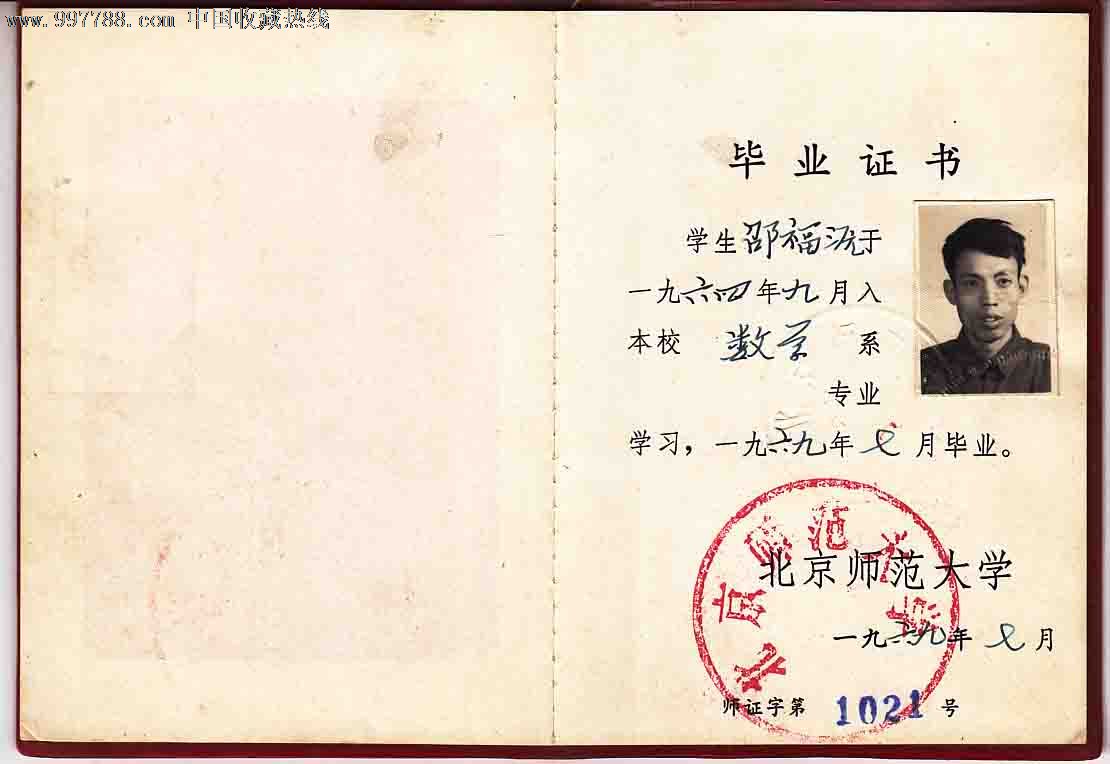 www.997788.com 中国收藏热线
毕业证书
学生邵福沅于
一九六四年九月入
本校 数学 系
专业
学习，一九六九年七月毕业。
北京师范大学
北京师范大学
一九六九年七月
师证字第 1021 号